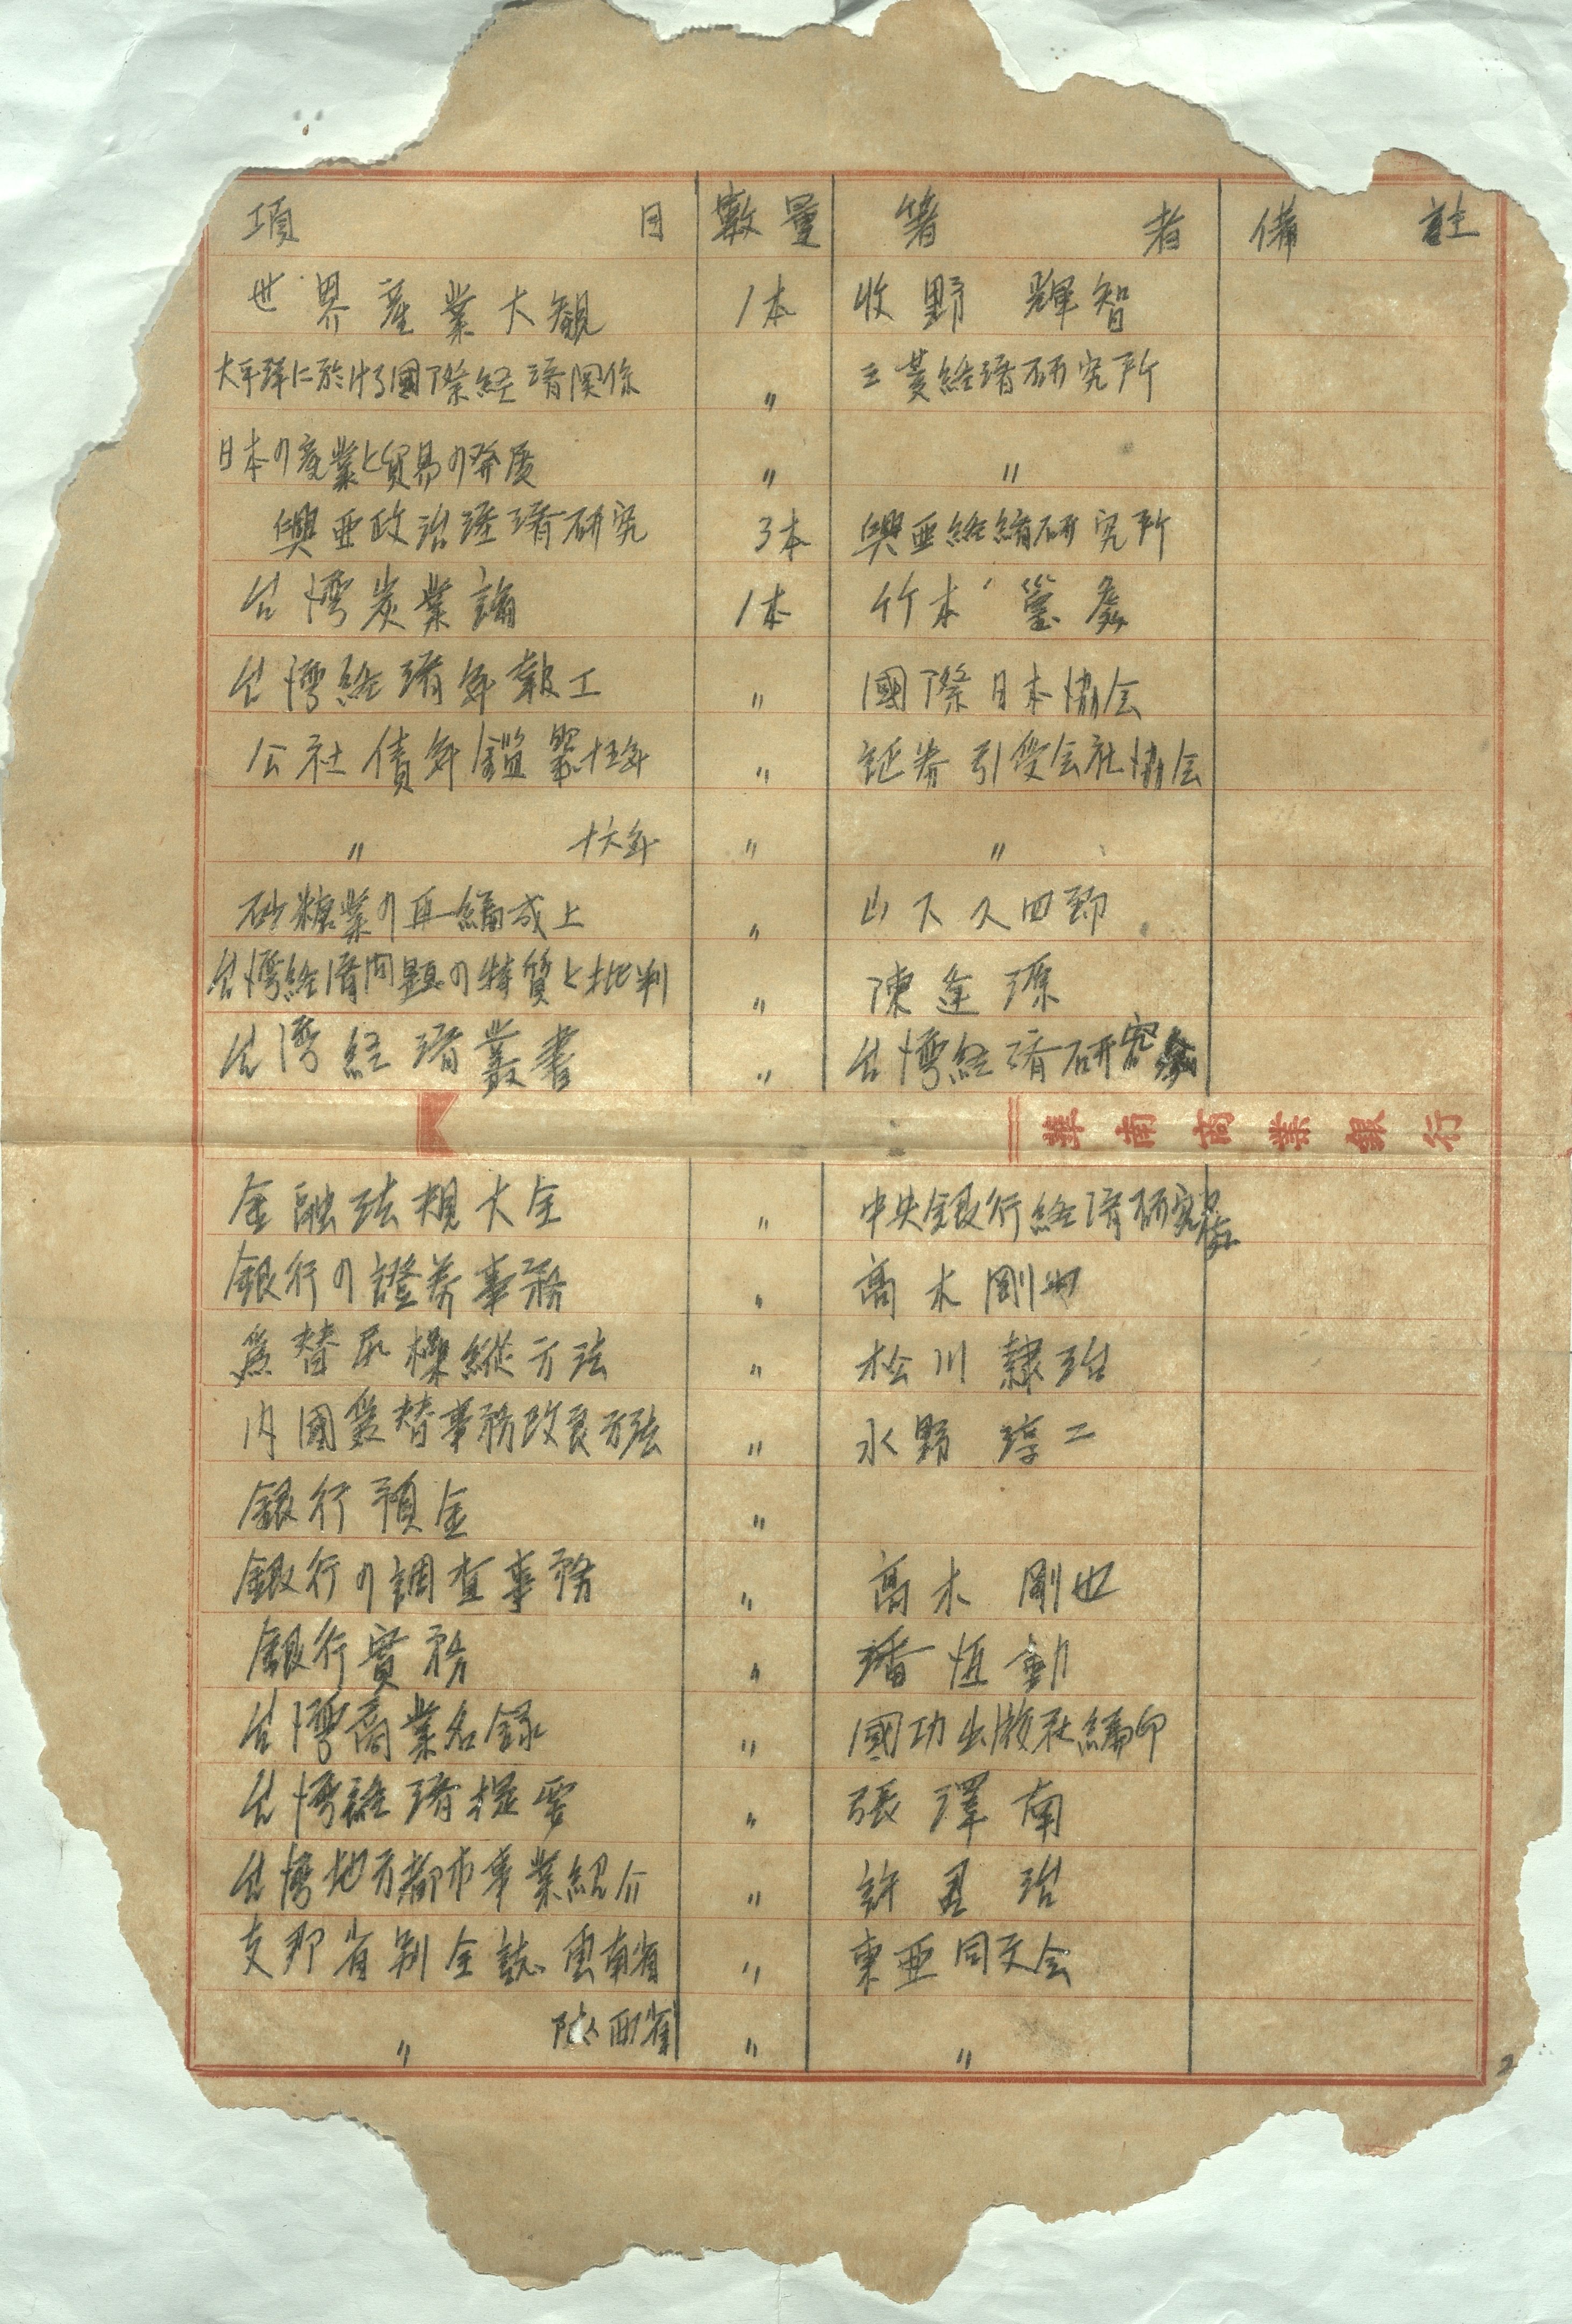 項 目 數量 著 者 備 註
世界產業大觀 1本 收野 輝智
太平洋に於ける國際経済関係 〃 三菱経済研究所
日本の産業と貿易の発展 〃 〃
興亜政治経済研究 3本 興亜経済研究所
台湾炭業論 1本 竹本
台湾経済年報 〃 國際日本協会
公社債年鑑 第十五年 〃 証券引受会社協会
〃 十六年 〃 〃
砂糖業の再編成上 〃 山下久四郎
台湾経済問題の特質と批判 〃 陳逢源
台湾経済叢書 〃 台湾経済研究会
華南商業銀行
金融法規大全 〃 中央銀行経済研究處
銀行の證券事務 〃 髙木剛也
為替尻操縦方法 〃 松川 治
内國為替事務改良方法 〃 水野 淳二
銀行預金 〃
銀行の調査事務 〃 髙木 剛也
銀行實務 〃 潘恆勤
台湾商業名録 〃 國功出版社編印
台湾経済提要 〃 張澤南
台湾地方都市事業紹介 〃 許 治
支那省別全誌 雲南省 〃 東亜同文会
〃 陝西省 〃 〃
2